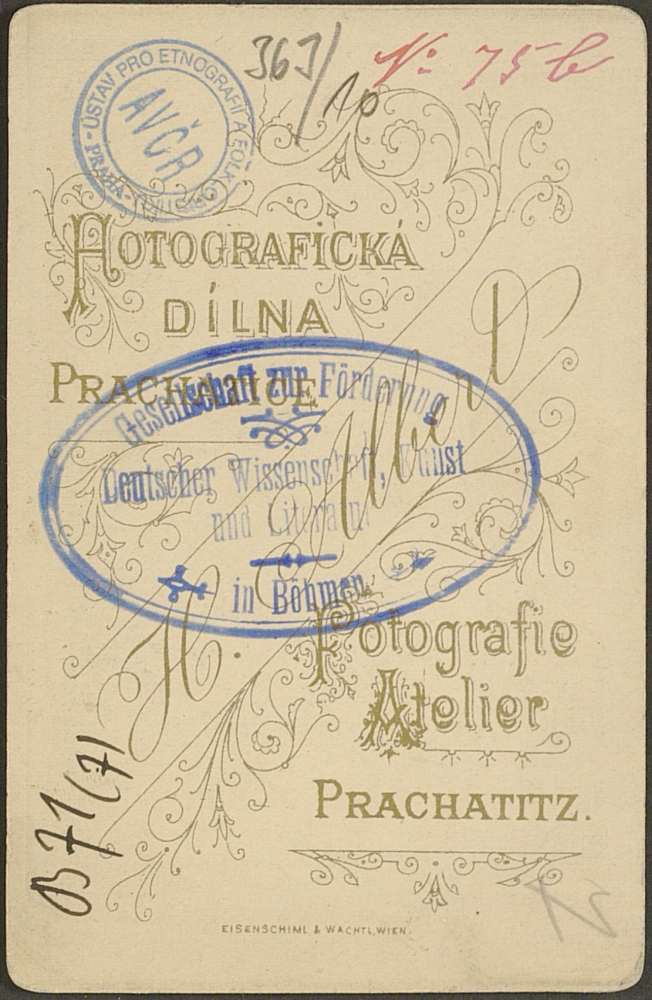 363/10
№ 75b
ÚSTAV PRO ETNOGRAFII A FOLKLORISTIKU - PRAHA -
AVČR
FOTOGRAFICKÁ
DÍLNA
PRACHATICE
Gesellschaft zur Förderung
Deutscher Wissenschaft, Kunst
und Literatur
in Böhmen
H. Albert
Fotografie
Atelier
PRACHATITZ.
B 71(7)
EISENSCHIML & WACHTL, WIEN.